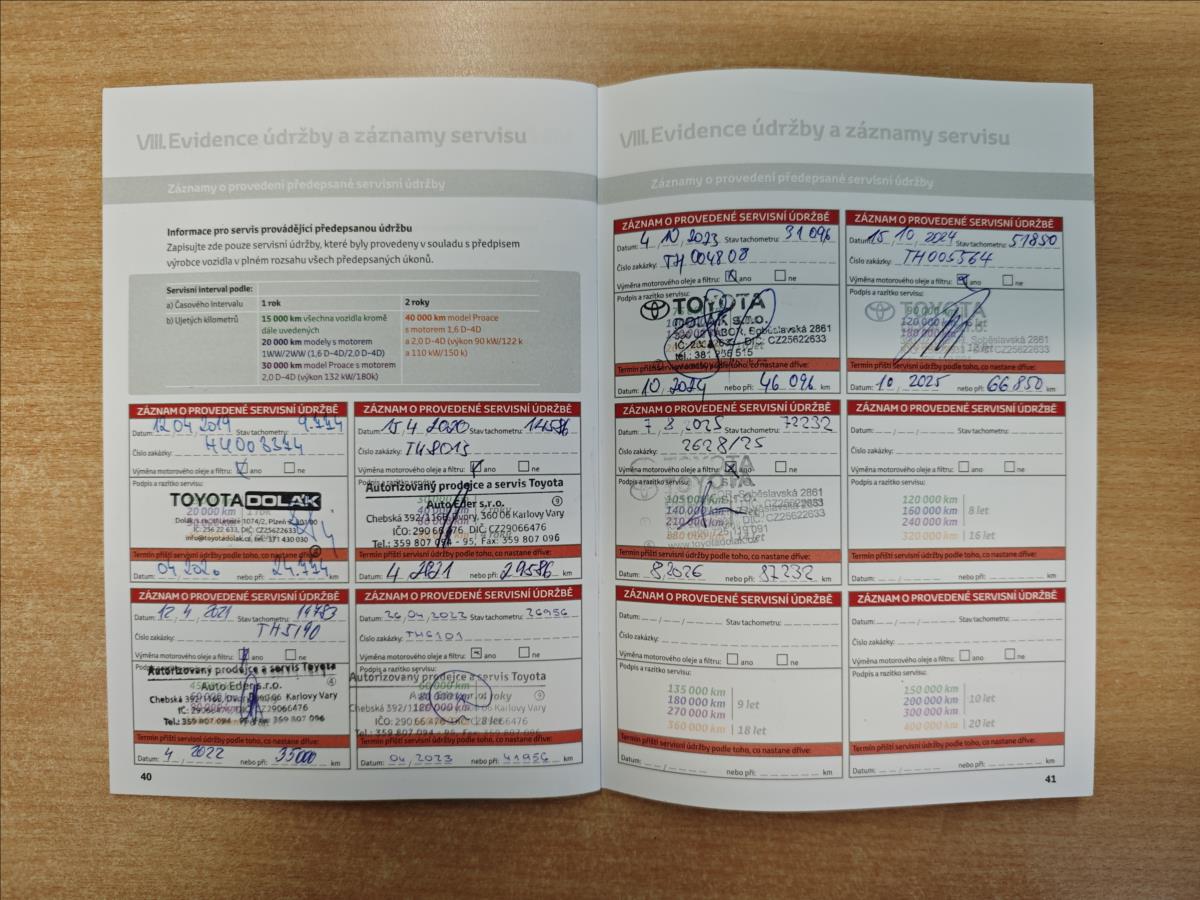 VIII. Evidence údržby a záznamy servisu
Záznamy o provedení předepsané servisní údržby
Informace pro servis provádějící předepsanou údržbu
Zapisujte zde pouze servisní údržby, které byly provedeny v souladu s předpisem
výrobce vozidla v plném rozsahu všech předepsaných úkonů.
Servisní interval podle:
a) Časového intervalu 1 rok 2 roky
b) Ujetých kilometrů 15 000 km všechna vozidla kromě 40 000 km model Proace
dále uvedených s motorem 1,6 D-4D
20 000 km modely s motorem a 2,0 D-4D (výkon 90 kW/122 k
1WW/2WW (1,6 D-4D/2,0 D-4D) a 110 kW/150 k)
30 000 km model Proace s motorem
2,0 D-4D (výkon 132 kW/180k)
ZÁZNAM O PROVEDENÉ SERVISNÍ ÚDRŽBĚ
Datum: 12 04 2019 Stav tachometru:
Číslo zakázky:
Výměna motorového oleje a filtru: ano ne
Podpis a razítko servisu:
TOYOTA DOLÁK
20 000 km 1 rok
IČ: 256 22 633, DIČ: CZ25622633
info@toyotadolak.cz, tel.: 371 430 030
Termín příští servisní údržby podle toho, co nastane dříve:
Datum: 04 2020 nebo při: km
ZÁZNAM O PROVEDENÉ SERVISNÍ ÚDRŽBĚ
Datum: 15 4 2020 Stav tachometru: 14586
Číslo zakázky: TH8013
Výměna motorového oleje a filtru: ano ne
Podpis a razítko servisu:
Autorizovaný prodejce a servis Toyota
Auto Eder s.r.o. 9
Chebská 392/116B, Dvory, 360 06 Karlovy Vary
IČO: 290 66 476, DIČ: CZ29066476
Tel.: 359 807 094 - 95, Fax: 359 807 096
Termín příští servisní údržby podle toho, co nastane dříve:
Datum: 4 2021 nebo při: 29586 km
ZÁZNAM O PROVEDENÉ SERVISNÍ ÚDRŽBĚ
Datum: 12 4 2021 Stav tachometru: 19783
Číslo zakázky: TH5190
Výměna motorového oleje a filtru: ano ne
Autorizovaný prodejce a servis Toyota
Auto Eder s.r.o. 4
Karlovy Vary
CZ29066476
Tel.: 359 807 094 359 807 096
Termín příští servisní údržby podle toho, co nastane dříve:
Datum: 4 2022 nebo při: 35000 km
ZÁZNAM O PROVEDENÉ SERVISNÍ ÚDRŽBĚ
Datum: 26 04 2022 Stav tachometru: 26956
Číslo zakázky: TH6101
Výměna motorového oleje a filtru: ano ne
Podpis a razítko servisu:
Autorizovaný prodejce a servis Toyota
9
Karlovy Vary
IČO: 290 66 476 8 let
Tel.: 359 807 094 - 95, Fax: 359 807 096
Termín příští servisní údržby podle toho, co nastane dříve:
Datum: 04 2023 nebo při: 41956 km
40
VIII. Evidence údržby a záznamy servisu
Záznamy o provedení předepsané servisní údržby
ZÁZNAM O PROVEDENÉ SERVISNÍ ÚDRŽBĚ
Datum: 4 10 2023 Stav tachometru: 31096
Číslo zakázky: TH004808
Výměna motorového oleje a filtru: ano ne
Podpis a razítko servisu:
TOYOTA
DOLÁK S.r.o.
TÁBOR, Soběslavská 2861
DIČ: CZ25622633
tel.: 381
Termín příští servisní údržby podle toho, co nastane dříve:
Datum: 10 2024 nebo při: 46 096 km
ZÁZNAM O PROVEDENÉ SERVISNÍ ÚDRŽBĚ
Datum: 15 10 2024 Stav tachometru: 51850
Číslo zakázky: TH005564
Výměna motorového oleje a filtru: ano ne
Podpis a razítko servisu:
TOYOTA
90 000 km
120 000 km 6 let
180 000 km
Soběslavská 2861
CZ25622633
Termín příští servisní údržby podle toho, co nastane dříve:
Datum: 10 2025 nebo při: 66 850 km
ZÁZNAM O PROVEDENÉ SERVISNÍ ÚDRŽBĚ
Datum: 7 8 2025 Stav tachometru: 72232
Číslo zakázky: 2628/25
Výměna motorového oleje a filtru: ano ne
Podpis a razítko servisu:
TOYOTA
105 000 km
140 000 km
210 000 km
Soběslavská 2861
CZ25622633
www.toyotadolak.cz
Termín příští servisní údržby podle toho, co nastane dříve:
Datum: 8,2026 nebo při: 87232 km
ZÁZNAM O PROVEDENÉ SERVISNÍ ÚDRŽBĚ
Datum: Stav tachometru:
Číslo zakázky:
Výměna motorového oleje a filtru: ano ne
Podpis a razítko servisu:
120 000 km
160 000 km 8 let
240 000 km
320 000 km 16 let
Termín příští servisní údržby podle toho, co nastane dříve:
Datum: nebo při: km
ZÁZNAM O PROVEDENÉ SERVISNÍ ÚDRŽBĚ
Datum: Stav tachometru:
Číslo zakázky:
Výměna motorového oleje a filtru: ano ne
Podpis a razítko servisu:
135 000 km
180 000 km 9 let
270 000 km
360 000 km 18 let
Termín příští servisní údržby podle toho, co nastane dříve:
Datum: nebo při: km
ZÁZNAM O PROVEDENÉ SERVISNÍ ÚDRŽBĚ
Datum: Stav tachometru:
Číslo zakázky:
Výměna motorového oleje a filtru: ano ne
Podpis a razítko servisu:
150 000 km
200 000 km 10 let
300 000 km
400 000 km 20 let
Termín příští servisní údržby podle toho, co nastane dříve:
Datum: nebo při: km
41